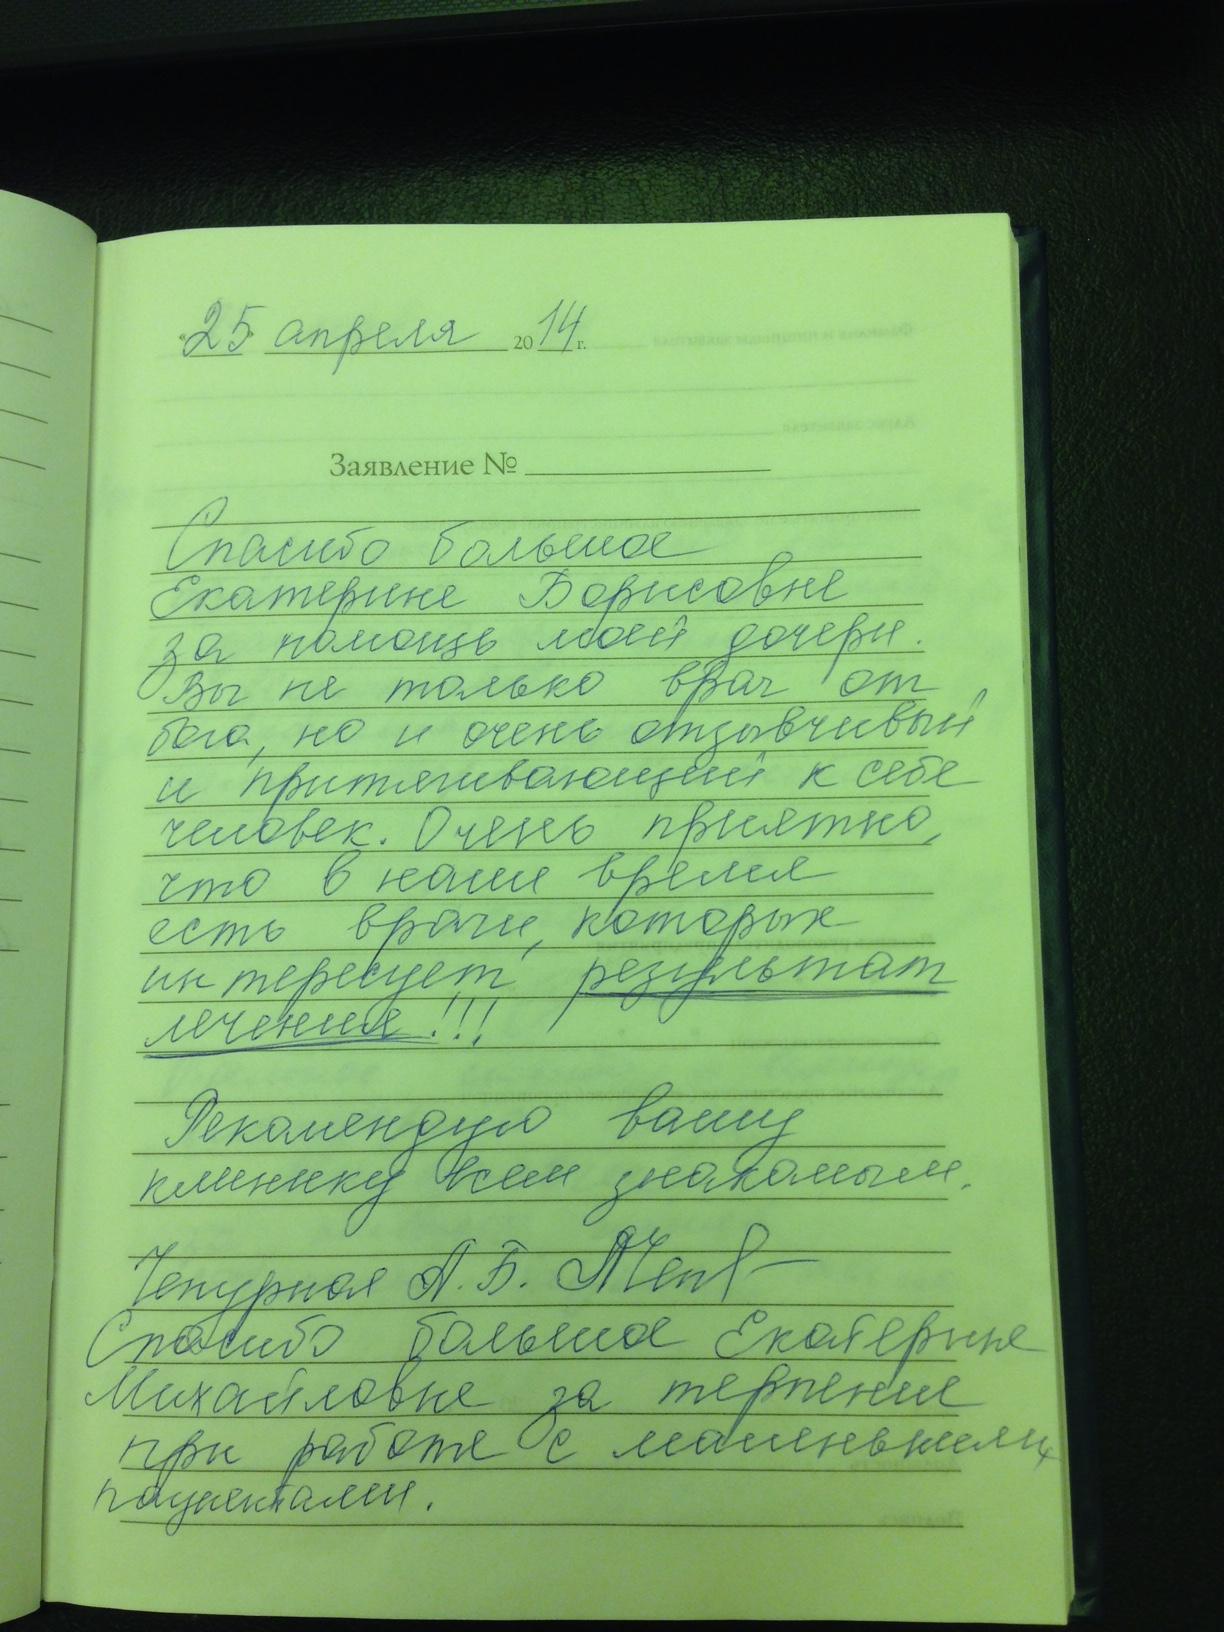 «25» апреля 2014 г.
Заявление №
Спасибо большое
Екатерине Борисовне
за помощь моей дочери.
Вы не только врач от
бога, но и очень отзывчивый
и притягивающий к себе
человек. Очень приятно,
что в наше время
есть врачи, которых
интересует результат
лечения!!!
Рекомендую вашу
клинику всем знакомым.
Чепурная А.Б.
Спасибо большое Екатерине
Михайловне за терпение
при работе с маленькими
пациентами.